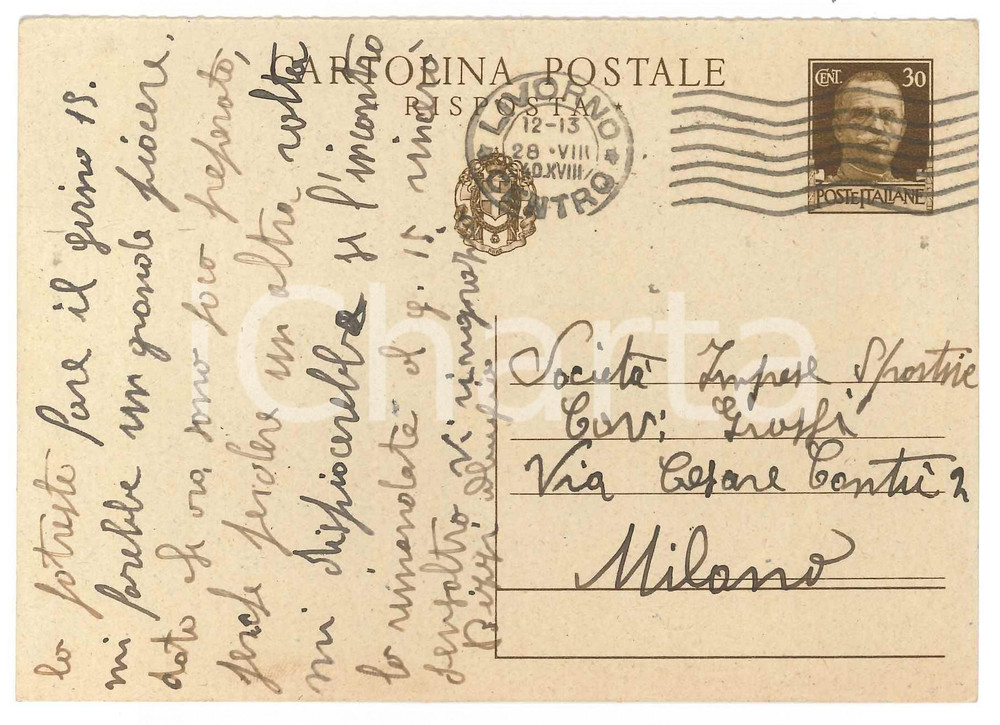 CARTOLINA POSTALE
RISPOSTA
LIVORNO
12-13
28 · VIII
40.XVIII
CENTRO
CENT. 30
POSTE ITALIANE
Società Imprese Sportive
Cav: Grossi
Via Cesare Cantù 2
Milano
lo potreste fare il girno 15.
mi farebbe un grande piacere.
dato che ora sono poco preparato,
perche perdere un altra volta
mi dispiacerebbe se l'incontro
lo rimandate al g. 15 vincerè
senzaltro Vi ringrazio
Pizzi
iCharta